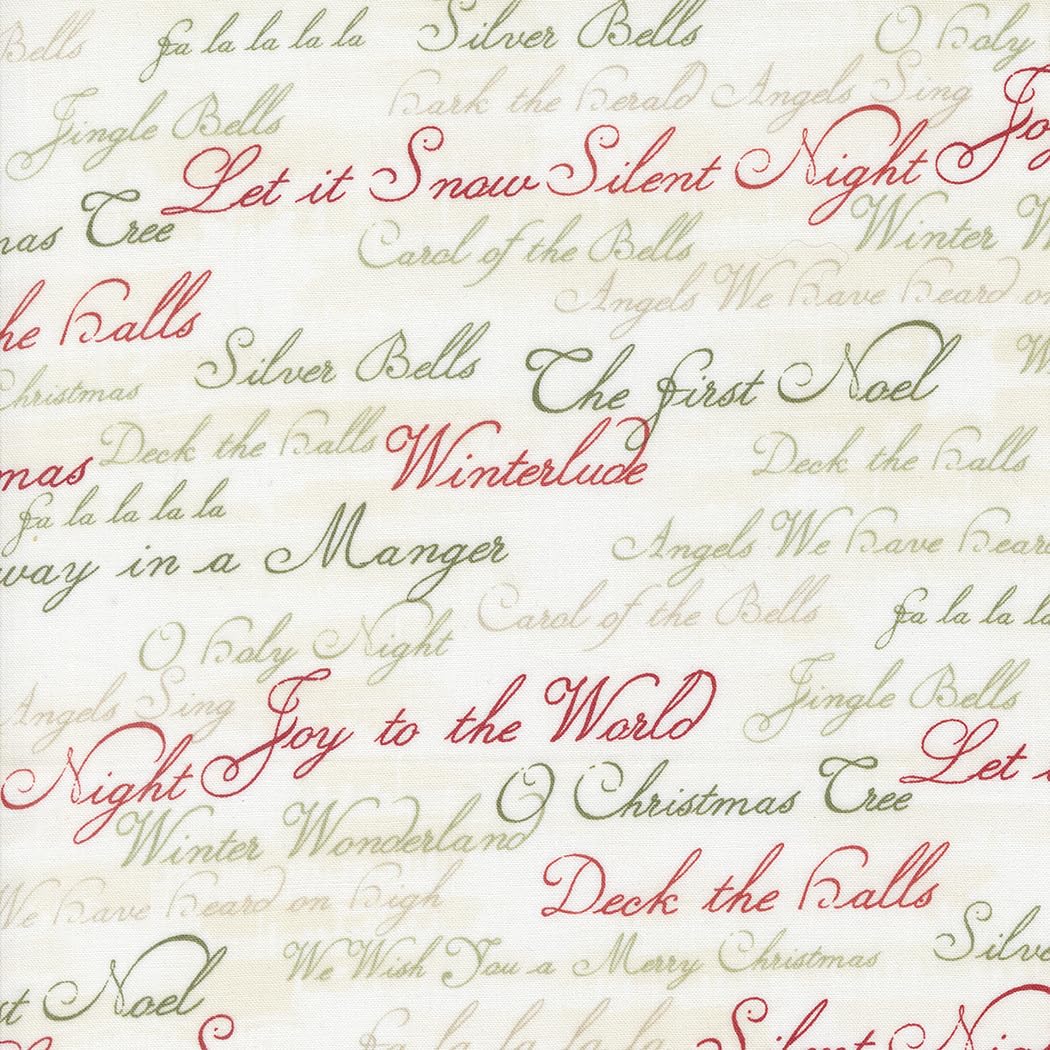 Bells fa la la la la Silver Bells O Holy
Jingle Bells Hark the Herald Angels Sing Joy
Let it Snow Silent Night
mas Tree Carol of the Bells Winter W
he Halls Angels We Have Heard on
Christmas Silver Bells The First Noel W
mas Deck the Halls Winterlude Deck the Halls
fa la la la la
way in a Manger Angels We Have Heard
O Holy Night Carol of the Bells fa la la la
Angels Sing Joy to the World Jingle Bells
Night O Christmas Tree Let i
Winter Wonderland
We Have Heard on High Deck the Halls
st Noel We Wish You a Merry Christmas Silve
S fa la la la la Silent Night